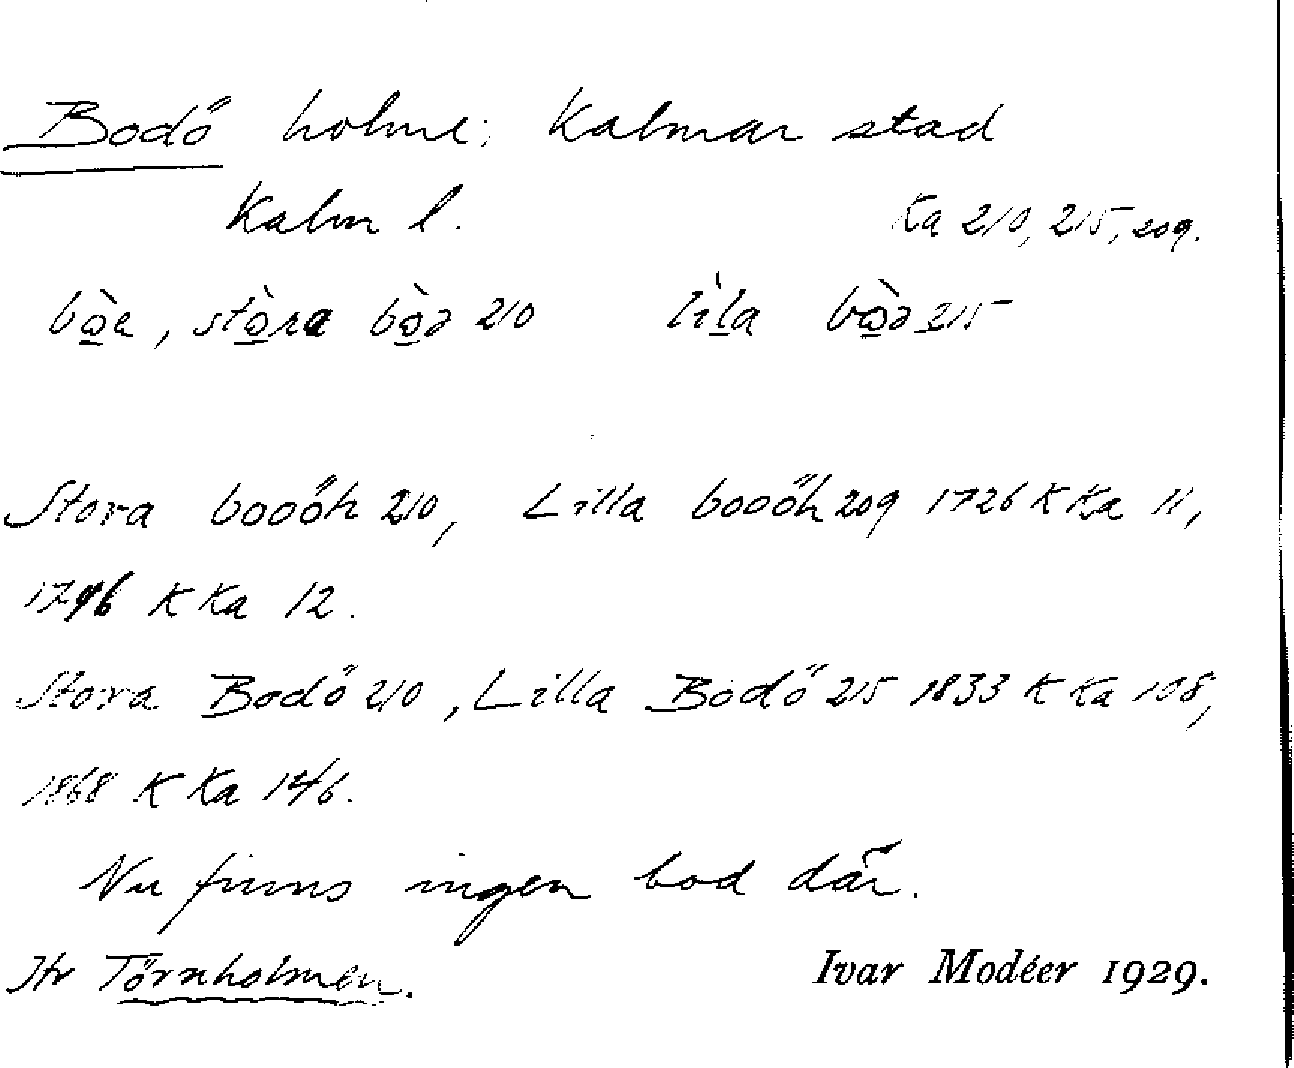 Bodö holme; Kalmar stad
Kalm l. Ka 210, 215, 209.
bò̲e, stò̲ra bò̲ə 210 lìl̲a bò̲ə 215
Stora booöh 210, Lilla booöh 209 1726 K Ka 11,
1796 K Ka 12.
Stora Bodö 210, Lilla Bodö 215 1833 K Ka 108,
1868 K Ka 146.
Nu finns ingen bod där.
Jfr Törnholmen.
Ivar Modéer 1929.